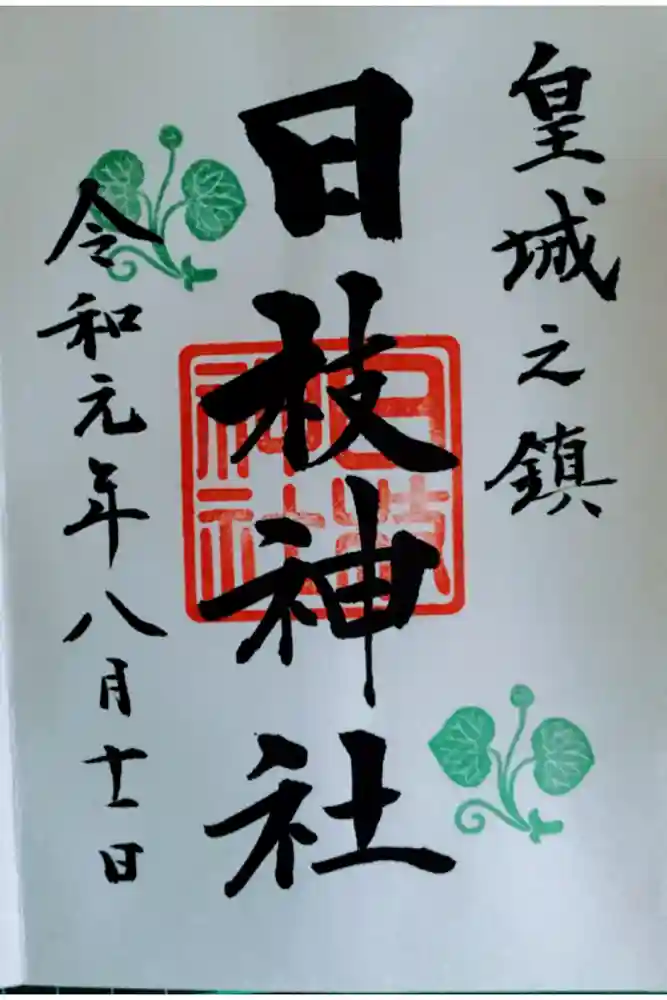 皇城之鎮
日枝神社
日枝神社
令和元年八月十一日